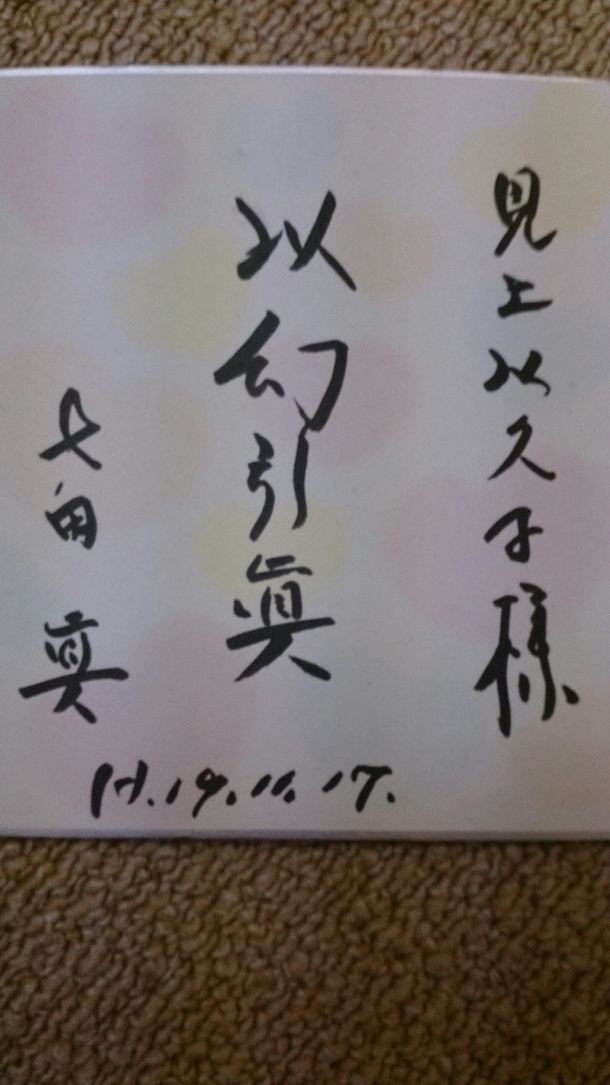 見上以久子様
以幻引眞
七田眞
H.19.11.17.